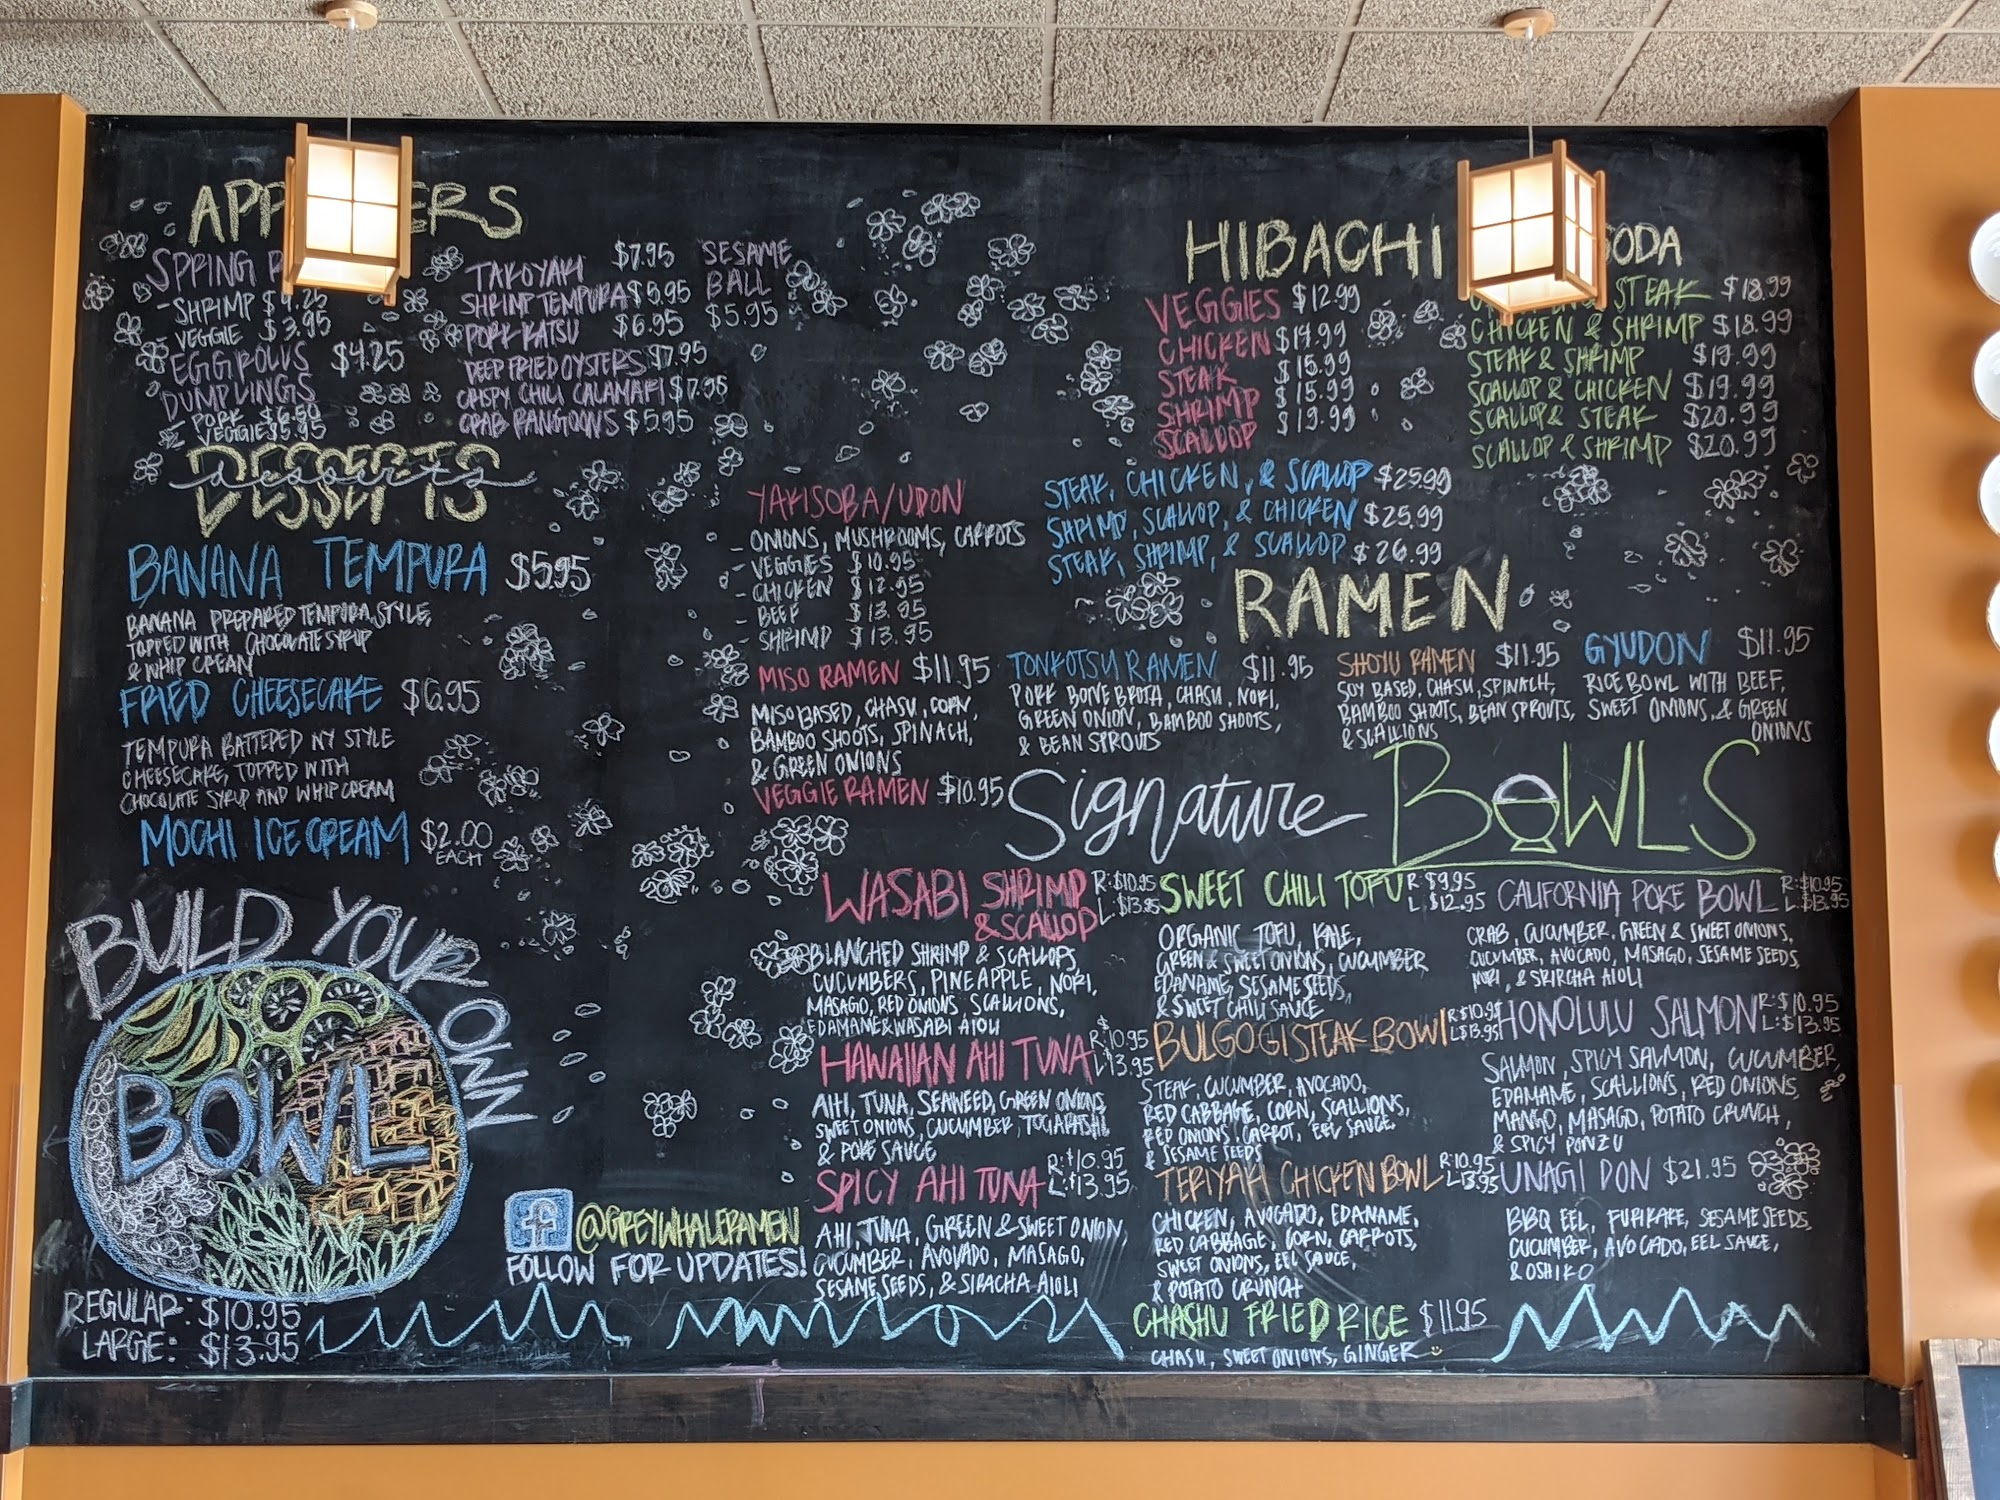 APP ERS
SPRING R
- SHRIMP $4.25
- VEGGIE $3.95
EGG ROLLS $4.25
DUMPLINGS
- PORK $6.50
- VEGGIE $5.95
TAKOYAKI $7.95
SHRIMP TEMPURA $5.95
PORK KATSU $6.95
DEEP FRIED OYSTERS $7.95
CRISPY CHILI CALAMARI $7.95
CRAB RANGOONS $5.95
SESAME
BALL
$5.95
DESSERTS
desserts
BANANA TEMPURA $5.95
BANANA PREPARED TEMPURA STYLE,
TOPPED WITH CHOCOLATE SYRUP
& WHIP CREAM
FRIED CHEESECAKE $6.95
TEMPURA BATTERED NY STYLE
CHEESECAKE, TOPPED WITH
CHOCOLATE SYRUP AND WHIP CREAM
MOCHI ICE CREAM $2.00
EACH
BUILD YOUR OWN
BOWL
REGULAR: $10.95
LARGE: $13.95
f @GREYWHALERAMEN
FOLLOW FOR UPDATES!
HIBACHI
SODA
VEGGIES $12.99
CHICKEN $14.99
STEAK $15.99
SHRIMP $15.99
SCALLOP $19.99
& STEAK $18.99
CHICKEN & SHRIMP $18.99
STEAK & SHRIMP $19.99
SCALLOP & CHICKEN $19.99
SCALLOP & STEAK $20.99
SCALLOP & SHRIMP $20.99
STEAK, CHICKEN, & SCALLOP $25.99
SHRIMP, SCALLOP, & CHICKEN $25.99
STEAK, SHRIMP, & SCALLOP $26.99
YAKISOBA/UDON
- ONIONS, MUSHROOMS, CARROTS
- VEGGIES $10.95
- CHICKEN $12.95
- BEEF $13.95
- SHRIMP $13.95
RAMEN
MISO RAMEN $11.95
MISO BASED, CHASU, CORN,
BAMBOO SHOOTS, SPINACH,
& GREEN ONIONS
VEGGIE RAMEN $10.95
TONKOTSU RAMEN $11.95
PORK BONE BROTH, CHASU, NORI,
GREEN ONION, BAMBOO SHOOTS,
& BEAN SPROUTS
SHOYU RAMEN $11.95
SOY BASED, CHASU, SPINACH,
BAMBOO SHOOTS, BEAN SPROUTS,
& SCALLIONS
GYUDON $11.95
RICE BOWL WITH BEEF,
SWEET ONIONS, & GREEN
ONIONS
Signature BOWLS
WASABI SHRIMP R: $10.95
& SCALLOP L: $13.95
BLANCHED SHRIMP & SCALLOPS,
CUCUMBERS, PINEAPPLE, NORI,
MASAGO, RED ONIONS, SCALLIONS,
EDAMAME & WASABI AIOLI
HAWAIIAN AHI TUNA R: $10.95
L: $13.95
AHI, TUNA, SEAWEED, GREEN ONIONS,
SWEET ONIONS, CUCUMBER, TOGARASHI,
& POKE SAUCE
SPICY AHI TUNA R: $10.95
L: $13.95
AHI, TUNA, GREEN & SWEET ONION,
CUCUMBER, AVOVADO, MASAGO,
SESAME SEEDS, & SIRACHA AIOLI
SWEET CHILI TOFU R $9.95
L $12.95
ORGANIC TOFU, KALE,
GREEN & SWEET ONIONS, CUCUMBER
EDANAME, SESAME SEEDS,
& SWEET CHILI SAUCE
BULGOGI STEAK BOWL R $10.95
L $13.95
STEAK, CUCUMBER, AVOCADO,
RED CABBAGE, CORN, SCALLIONS,
RED ONIONS, CARROT, EEL SAUCE,
& SESAME SEEDS
TERIYAKI CHICKEN BOWL R $10.95
L $13.95
CHICKEN, AVOCADO, EDANAME,
RED CABBAGE, CORN, CARROTS,
SWEET ONIONS, EEL SAUCE,
& POTATO CRUNCH
CHASHU FRIED RICE $11.95
CHASU, SWEET ONIONS, GINGER
CALIFORNIA POKE BOWL R: $10.95
L: $13.95
CRAB, CUCUMBER, GREEN & SWEET ONIONS,
CUCUMBER, AVOCADO, MASAGO, SESAME SEEDS,
NORI, & SRIRCHA AIOLI
HONOLULU SALMON R: $10.95
L: $13.95
SALMON, SPICY SALMON, CUCUMBER,
EDAMAME, SCALLIONS, RED ONIONS,
MANGO, MASAGO, POTATO CRUNCH,
& SPICY PONZU
UNAGI DON $21.95
BBQ EEL, FURIKAKE, SESAME SEEDS,
CUCUMBER, AVOCADO, EEL SAUCE,
& OSHIKO